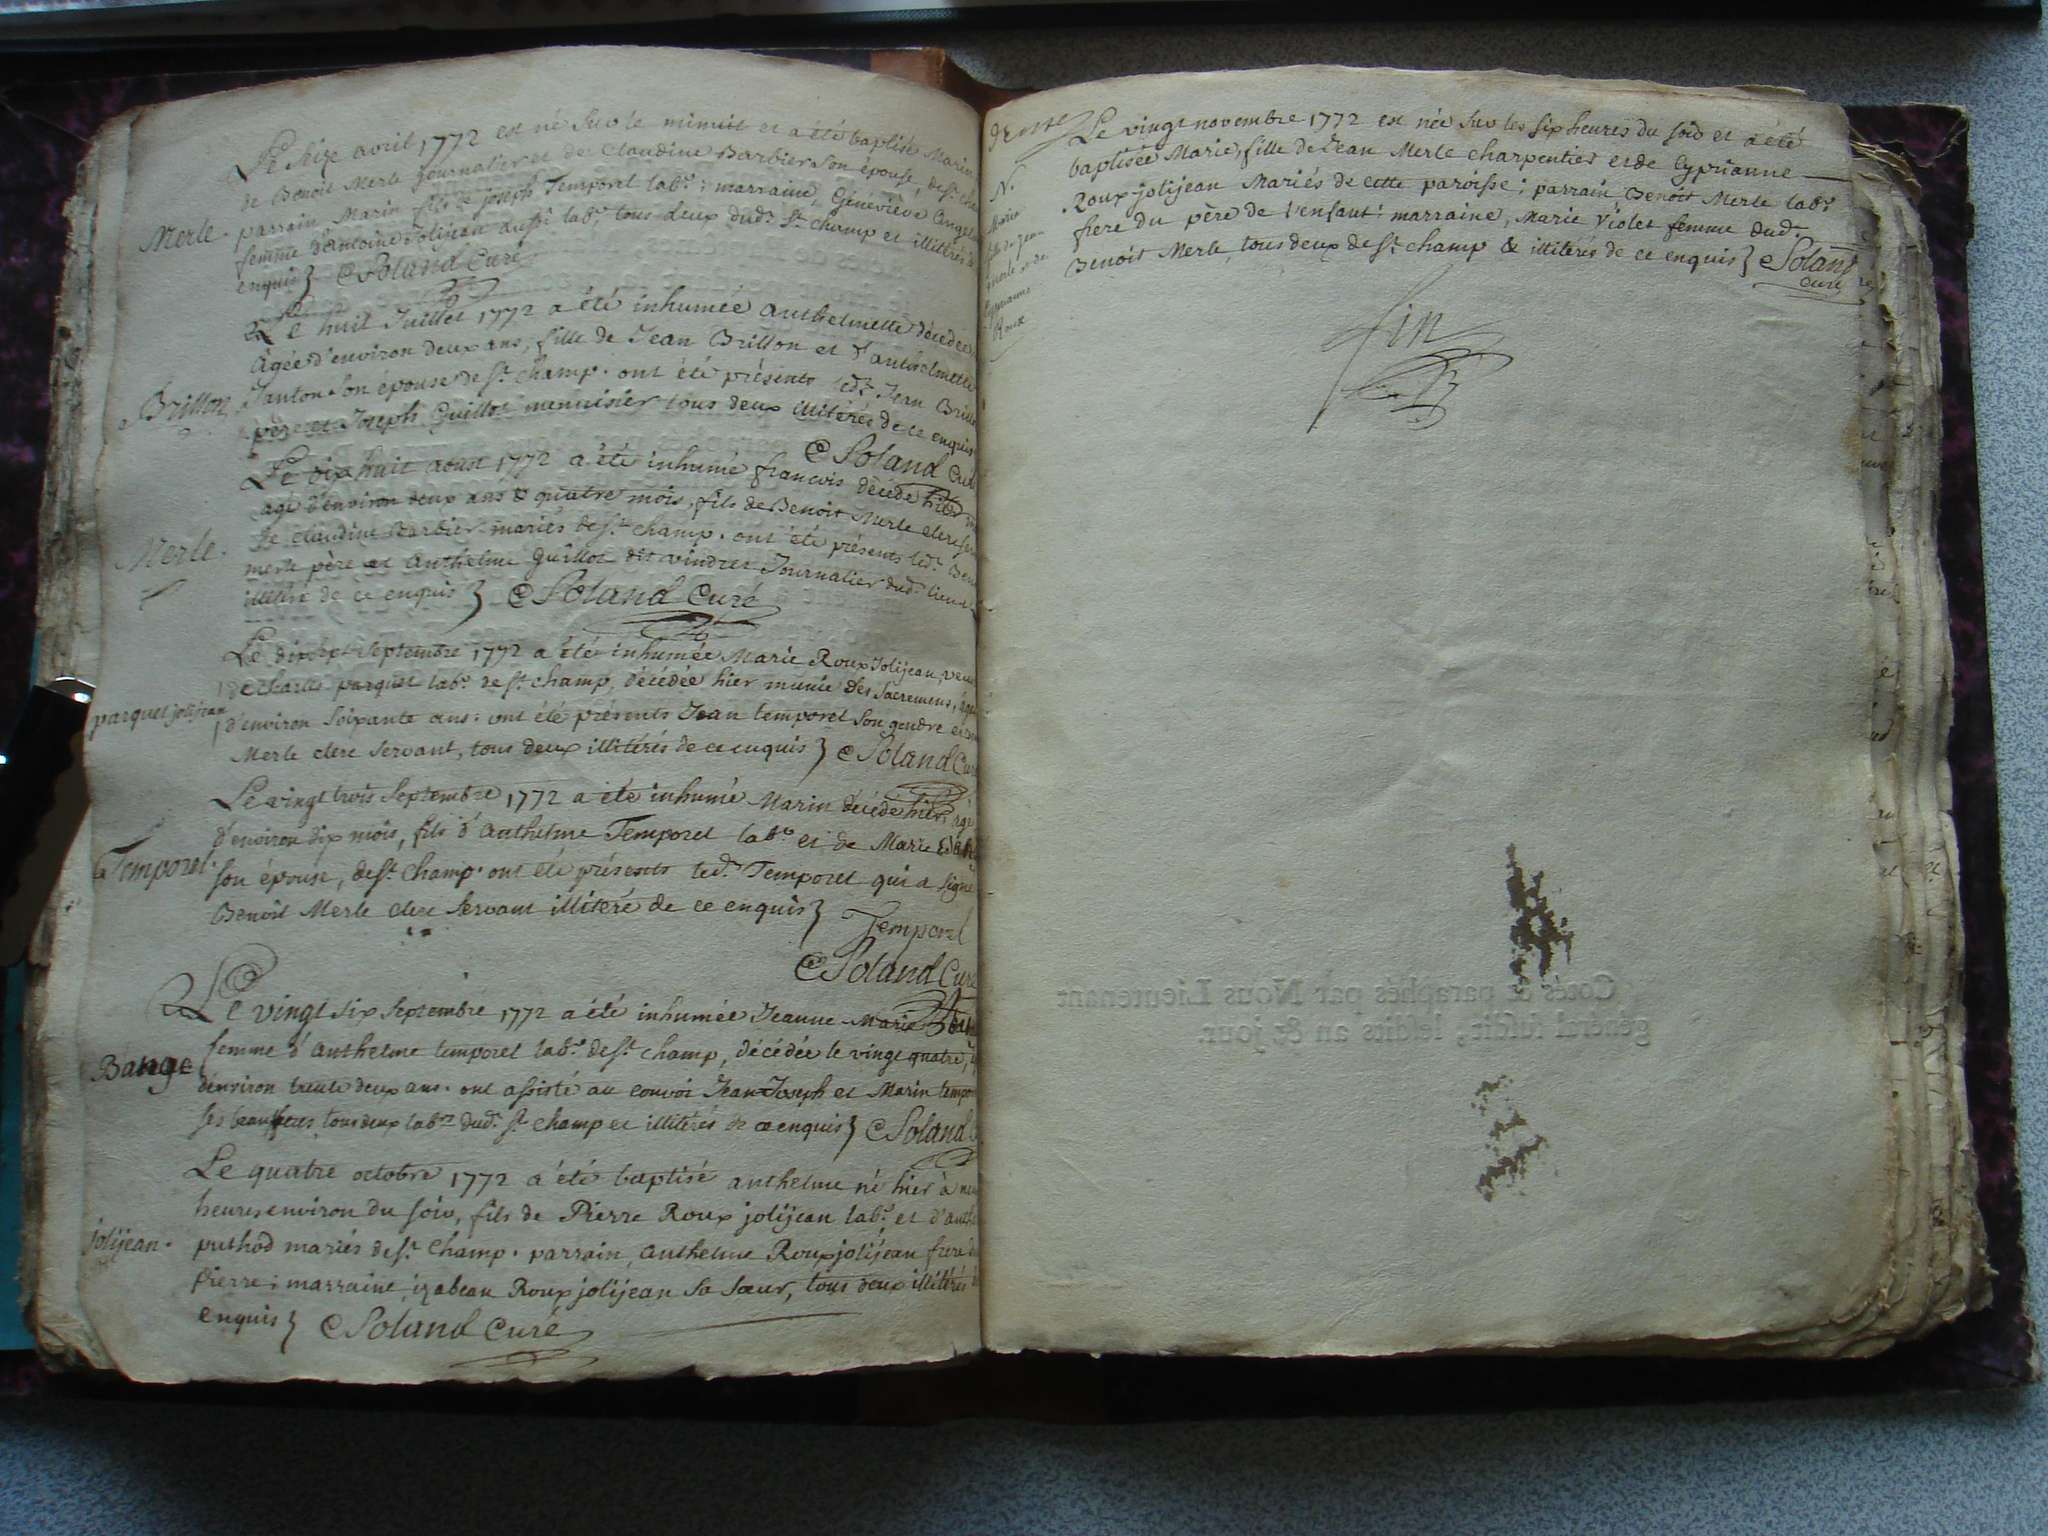 Le seize avril 1772 est né sur le minuit et a été baptisé Marin
de Benoit Merle Journalier et de Claudine Barbier son épouse, de St.
Merle. parrain Marin fils de joseph Temporel labr. ; marraine, Géneviève
femme d'antoine jolijean aussi labr. tous deux dudt. St. champ et illitérés
enquis } Soland Curé
Le huit Juillet 1772 a été inhumée anthelmette décédée
âgée d'environ deux ans, fille de Jean Brillon et d'anthelmette
Brillon. Janton son épouse de St. champ. ont été présents ledt. Jean
père et Joseph Guillot menuisier tous deux illitérés de ce enquis
Soland Curé
Le dix huit aoust 1772 a été inhumé francois décédé hier
agé d'environ deux ans & quatre mois, fils de Benoit Merle clerc
de Claudine Barbier mariés de St. champ. ont été présents ledt.
Merle. merle père et Anthelme Guillot dit vindret Journalier dudt. lieu
illitéré de ce enquis } Soland Curé
Le dixsept septembre 1772 a été inhumée Marie Roux Jolijean,
de charles parquet labr. de St. champ, décédée hier munie des Sacremens,
parquet jolijean d'environ soixante ans : ont été présents Jean temporel son gendre et
Merle clerc servant, tous deux illitérés de ce enquis } Soland
Le vingt trois septembre 1772 a été inhumé Marin décédé hier, agé
d'environ dix mois, fils d'Anthelme Temporel labr. et de Marie
Temporel. son épouse, de St. champ. ont été présents ledt. Temporel qui a signé
Benoit Merle clerc servant illitéré de ce enquis }
Temporel
Soland Curé
Le vingt six septembre 1772 a été inhumée Jeanne-Marie
femme d'Anthelme temporel labr. de St. champ, décédée le vingt quatre,
Bange d'environ trente deux ans. ont assisté au convoi Jean-Joseph et Marin
ses beaufreres, tous deux labrs. dudt. St. champ et illitérés de ce enquis } Soland
Le quatre octobre 1772 a été baptisé anthelme né hier à
heures environ du soir, fils de Pierre Roux jolijean labr. et
jolijean. puthod mariés de St. Champ. parrain, anthelme Roux jolijean frere
pierre ; marraine, izabeau Roux jolijean sa sœur, tous deux illitérés
enquis } Soland Curé
Le vingt novembre 1772 est née sur les six heures du soir et a été
baptisée Marie, fille de Jean Merle charpentier et de Cyprianne
Roux jolijean Mariés de cette paroisse ; parrain, Benoit Merle labr.
frere du père de l'enfant : marraine, Marie Violet femme dudt.
Benoit Merle, tous deux de St. champ & illitérés de ce enquis } Soland
Curé
N.
Marie
fille de Jean
merle et de
Cyprianne
Roux
fin
Cotés & paraphés par Nous Lieutenant
général susdit, lesdits an & jour.